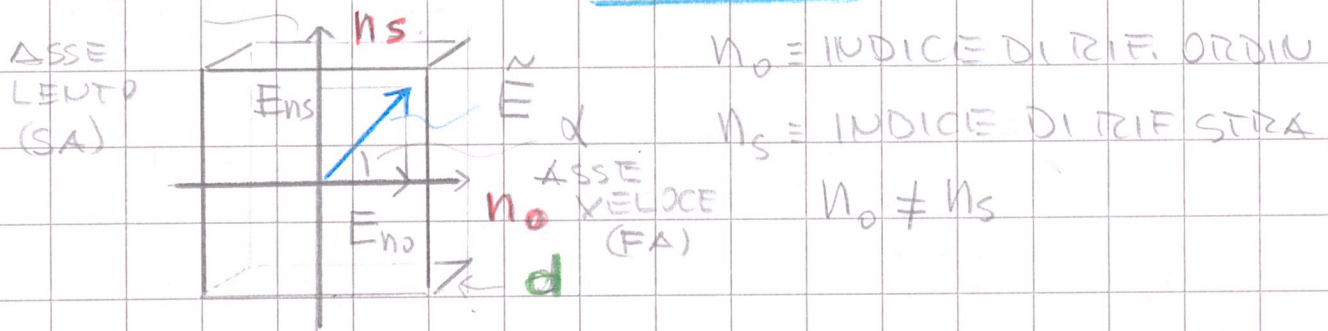 ASSE
LENTO
(SA)
ns
Ens
Ẽ
α
ASSE
VELOCE
(FA)
no
Eno
d
no ≡ INDICE DI RIF. ORDIN
ns ≡ INDICE DI RIF STRA
no ≠ ns